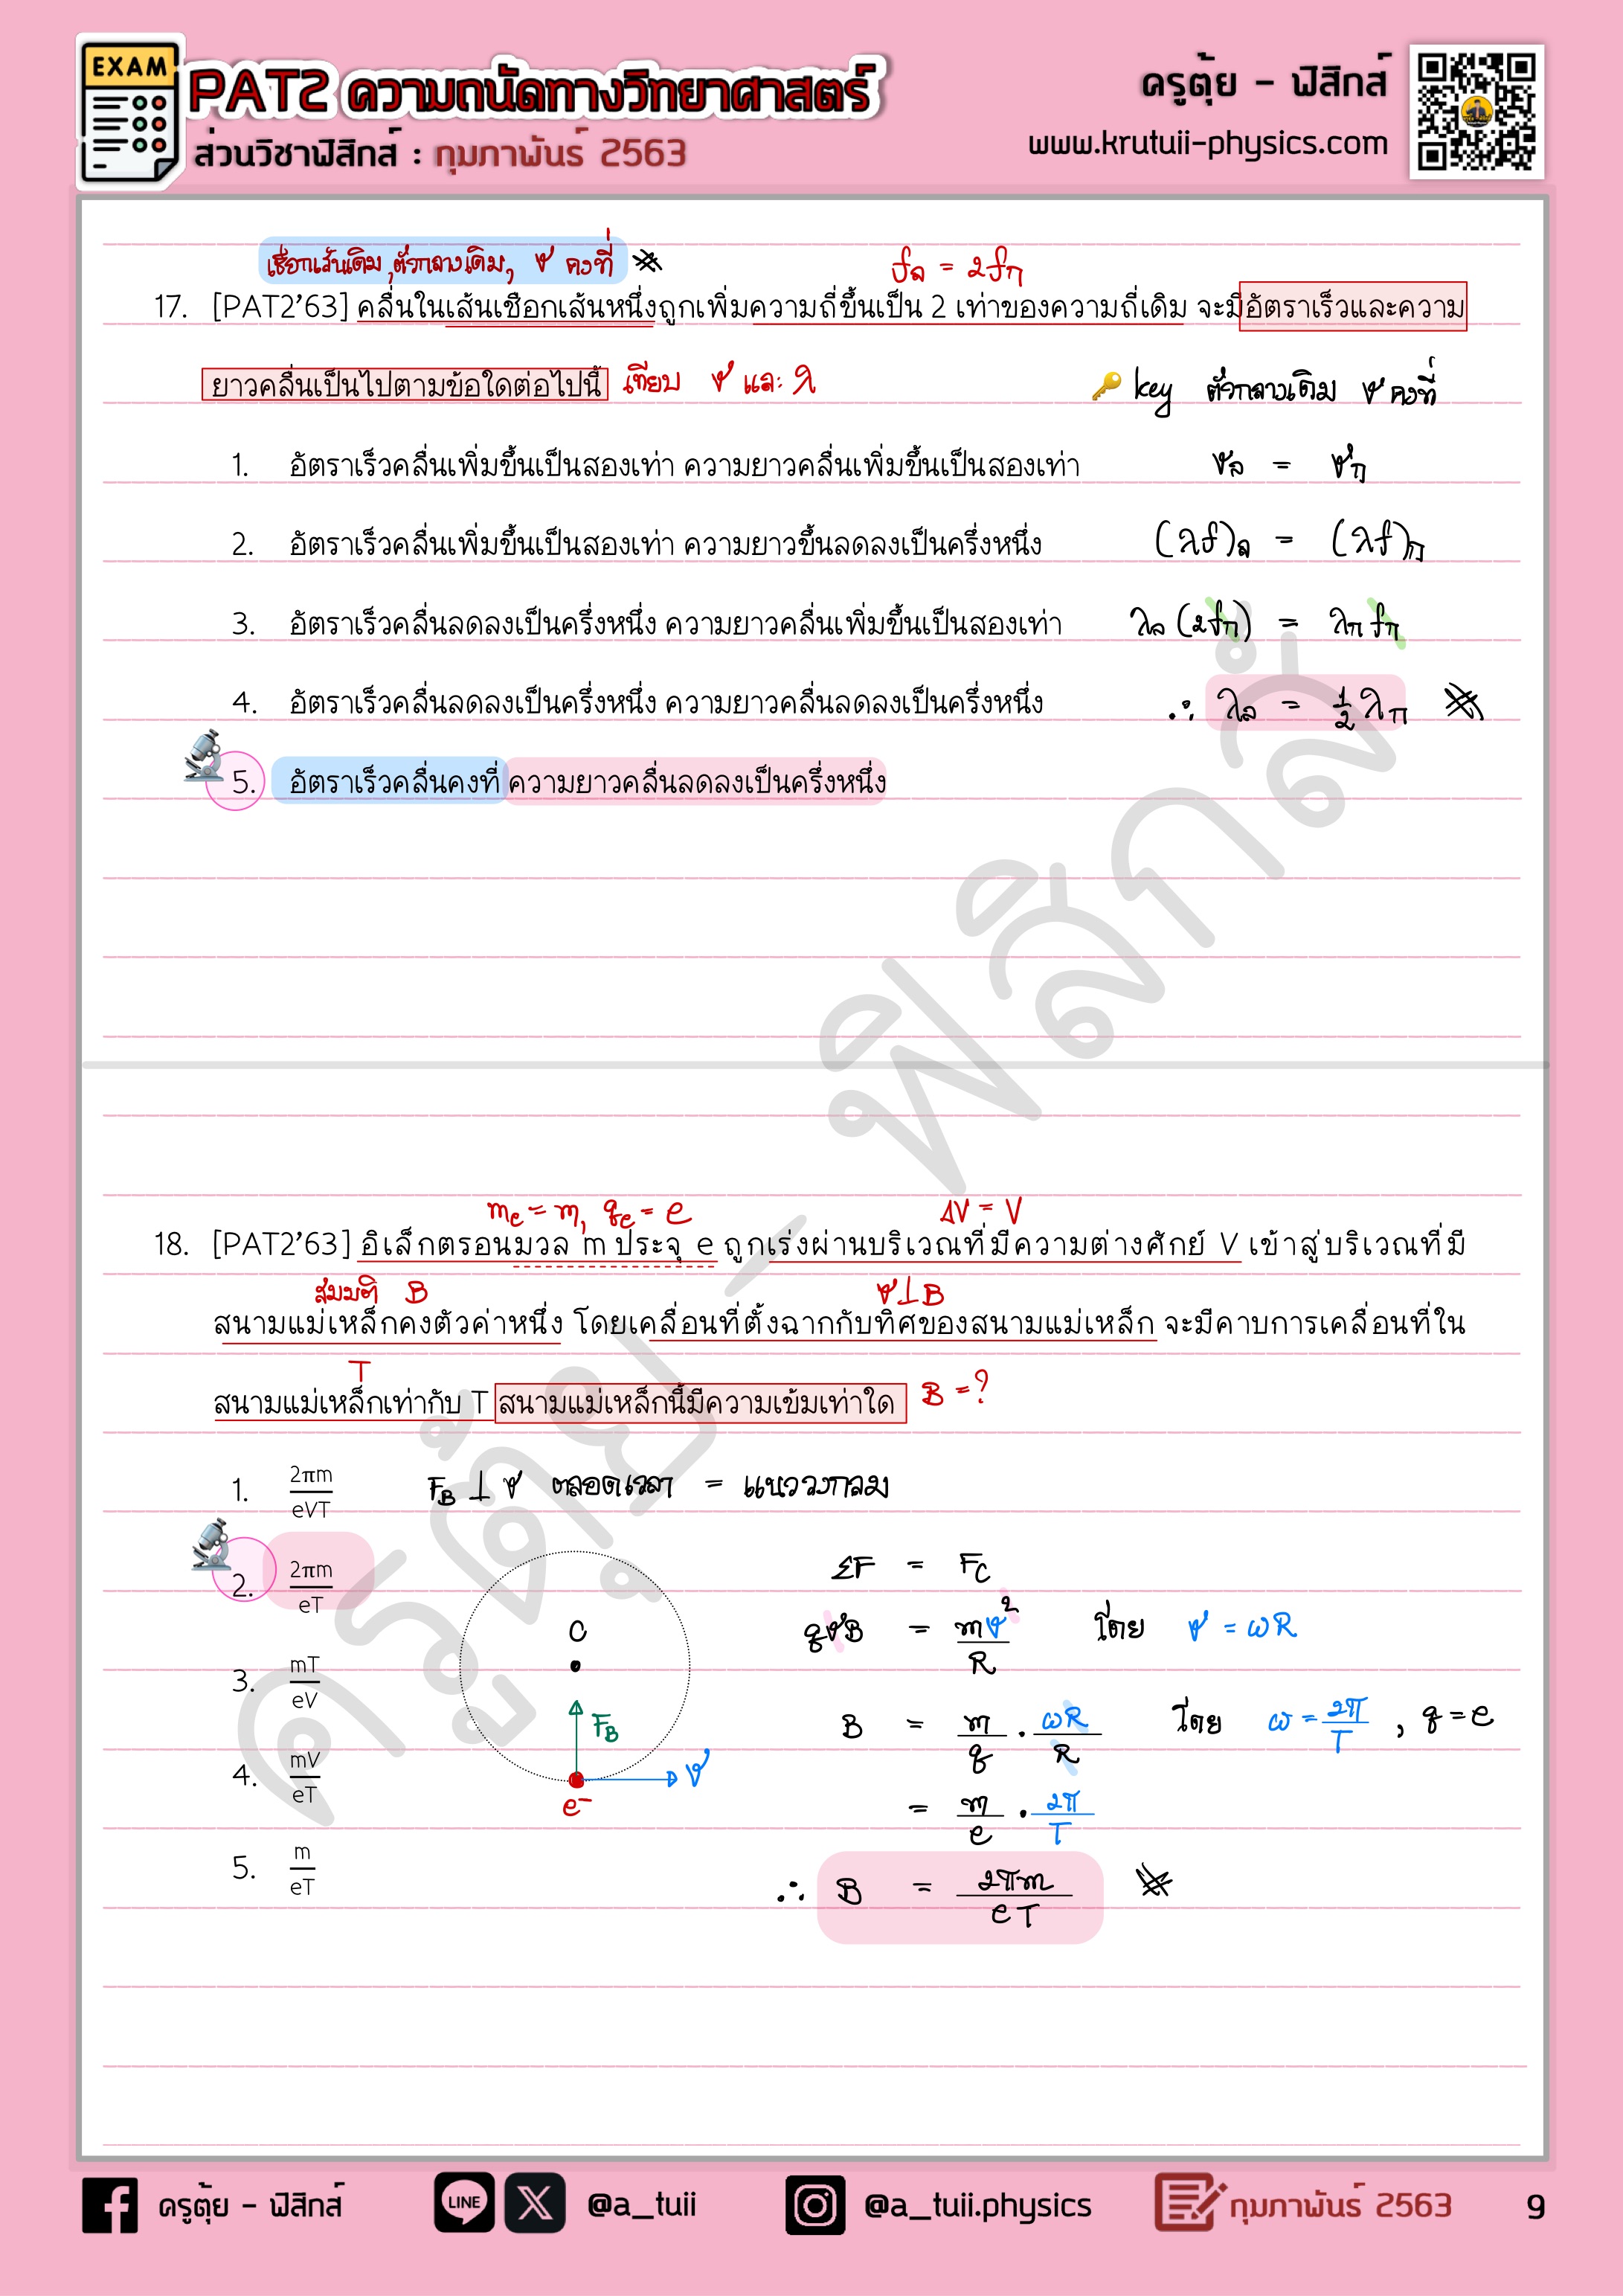 EXAM
PAT2 ความถนัดทางวิทยาศาสตร์
ส่วนวิชาฟิสิกส์ : กุมภาพันธ์ 2563
ครูตุ้ย - ฟิสิกส์
www.krutuii-physics.com
เชือกเส้นเดิม, ตัวกลางเดิม, v คงที่
fล = 2fก
17. [PAT2'63] คลื่นในเส้นเชือกเส้นหนึ่งถูกเพิ่มความถี่ขึ้นเป็น 2 เท่าของความถี่เดิม จะมีอัตราเร็วและความ
ยาวคลื่นเป็นไปตามข้อใดต่อไปนี้ เทียบ v และ λ
key ตัวกลางเดิม v คงที่
1. อัตราเร็วคลื่นเพิ่มขึ้นเป็นสองเท่า ความยาวคลื่นเพิ่มขึ้นเป็นสองเท่า
vล = vก
2. อัตราเร็วคลื่นเพิ่มขึ้นเป็นสองเท่า ความยาวขึ้นลดลงเป็นครึ่งหนึ่ง
(λf)ล = (λf)ก
3. อัตราเร็วคลื่นลดลงเป็นครึ่งหนึ่ง ความยาวคลื่นเพิ่มขึ้นเป็นสองเท่า
λล (2fก) = λก fก
4. อัตราเร็วคลื่นลดลงเป็นครึ่งหนึ่ง ความยาวคลื่นลดลงเป็นครึ่งหนึ่ง
∴ λล = 1/2 λก
5. อัตราเร็วคลื่นคงที่ ความยาวคลื่นลดลงเป็นครึ่งหนึ่ง
ครูตุ้ย - ฟิสิกส์
me = m, qe = e
ΔV = V
18. [PAT2'63] อิเล็กตรอนมวล m ประจุ e ถูกเร่งผ่านบริเวณที่มีความต่างศักย์ V เข้าสู่บริเวณที่มี
สมมติ B
v⊥B
สนามแม่เหล็กคงตัวค่าหนึ่ง โดยเคลื่อนที่ตั้งฉากกับทิศของสนามแม่เหล็ก จะมีคาบการเคลื่อนที่ใน
T
สนามแม่เหล็กเท่ากับ T สนามแม่เหล็กนี้มีความเข้มเท่าใด B = ?
1. 2πm/eVT
FB ⊥ v ตลอดเวลา = แนววงกลม
2. 2πm/eT
3. mT/eV
4. mV/eT
5. m/eT
C
FB
v
e-
ΣF = FC
qvB = mv²/R โดย v = ωR
B = m/q · ωR/R โดย ω = 2π/T , q = e
= m/e · 2π/T
∴ B = 2πm/eT
ครูตุ้ย - ฟิสิกส์
LINE
@a_tuii
@a_tuii.physics
กุมภาพันธ์ 2563
9